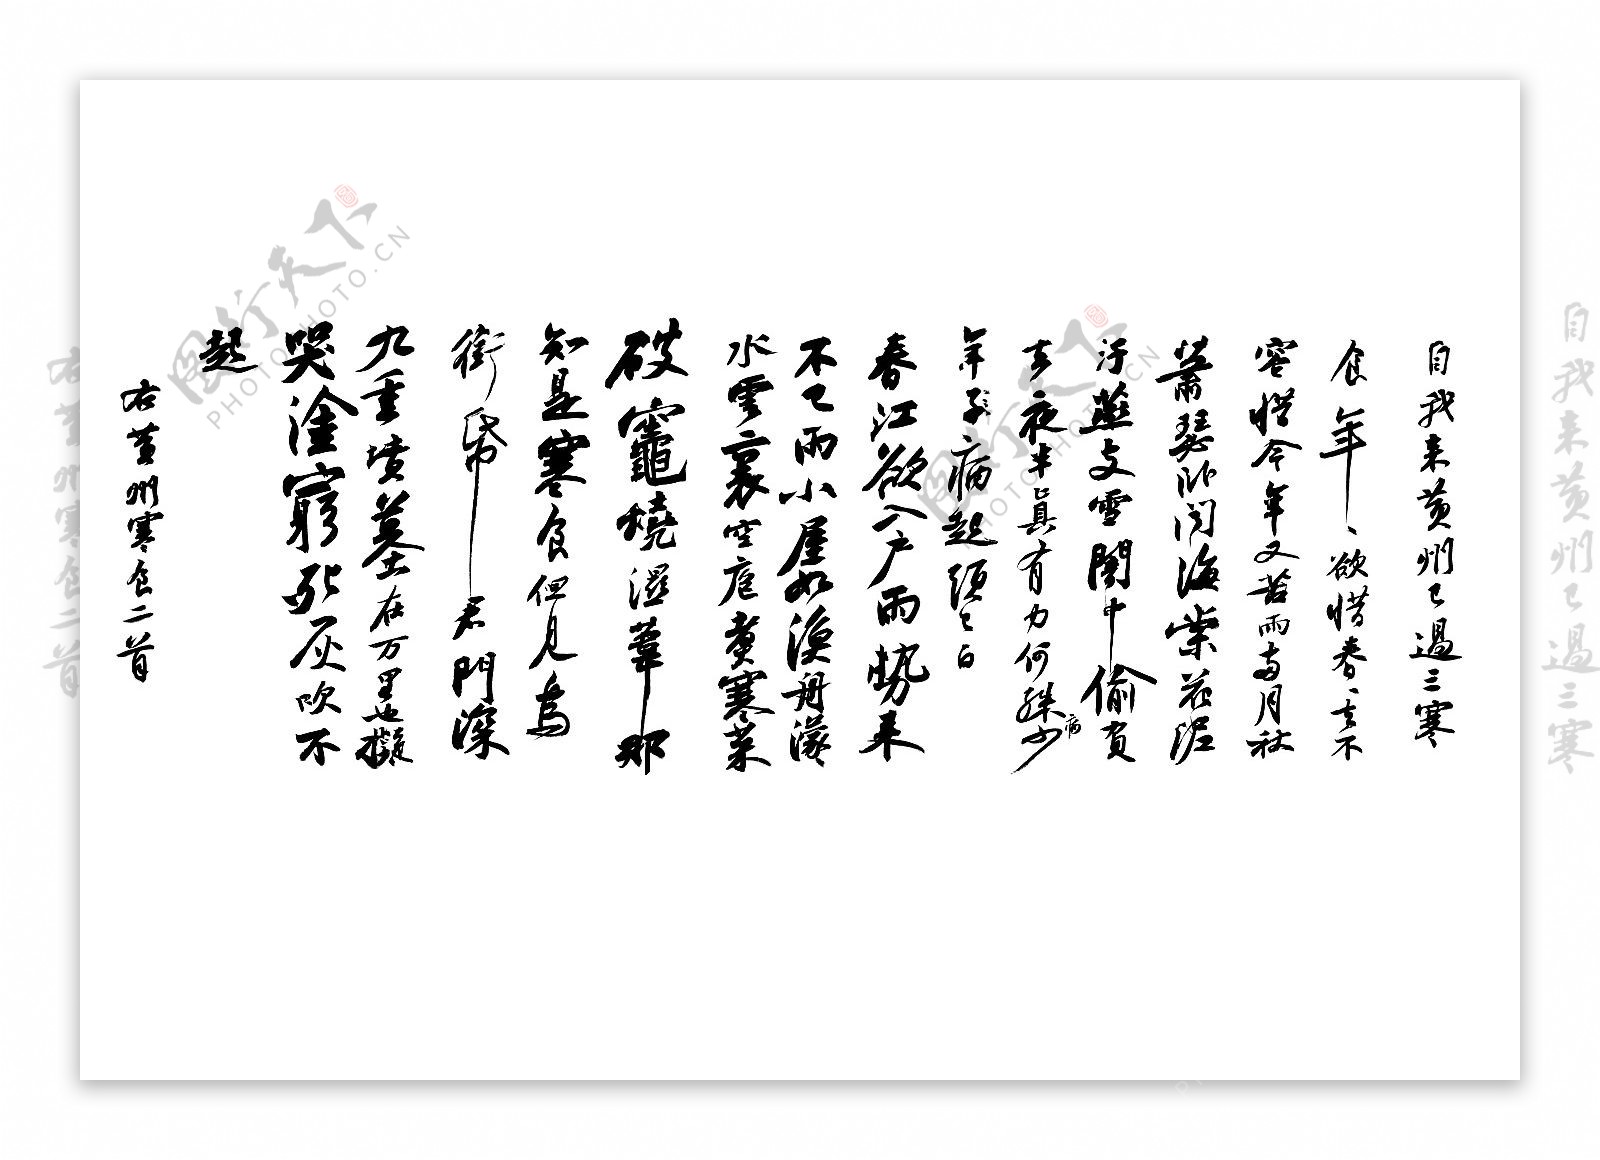 自我来黄州已過三寒
食年、欲惜春、去不
容惜今年又苦雨兩月秋
蕭瑟卧聞海棠花泥
汙燕支雪闇中偷負
去夜半真有力何殊少
年子病起須已白
病
春江欲入户雨勢来
不已雨小屋如漁舟濛
水雲裏空庖煮寒菜
破竈燒濕葦那
知是寒食但見烏
銜帋君門深
九重墳墓在万里也擬
哭塗窮死灰吹不
起
右黄州寒食二首
图行天下
PHOTO.CN
图行天下
PHOTO.CN
自我来黄州已過三寒
右黄州寒食二首